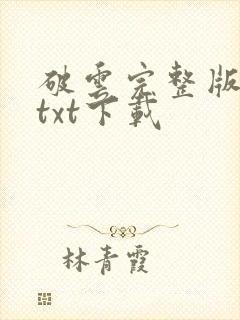 破雲完整版
txt下載
林青霞